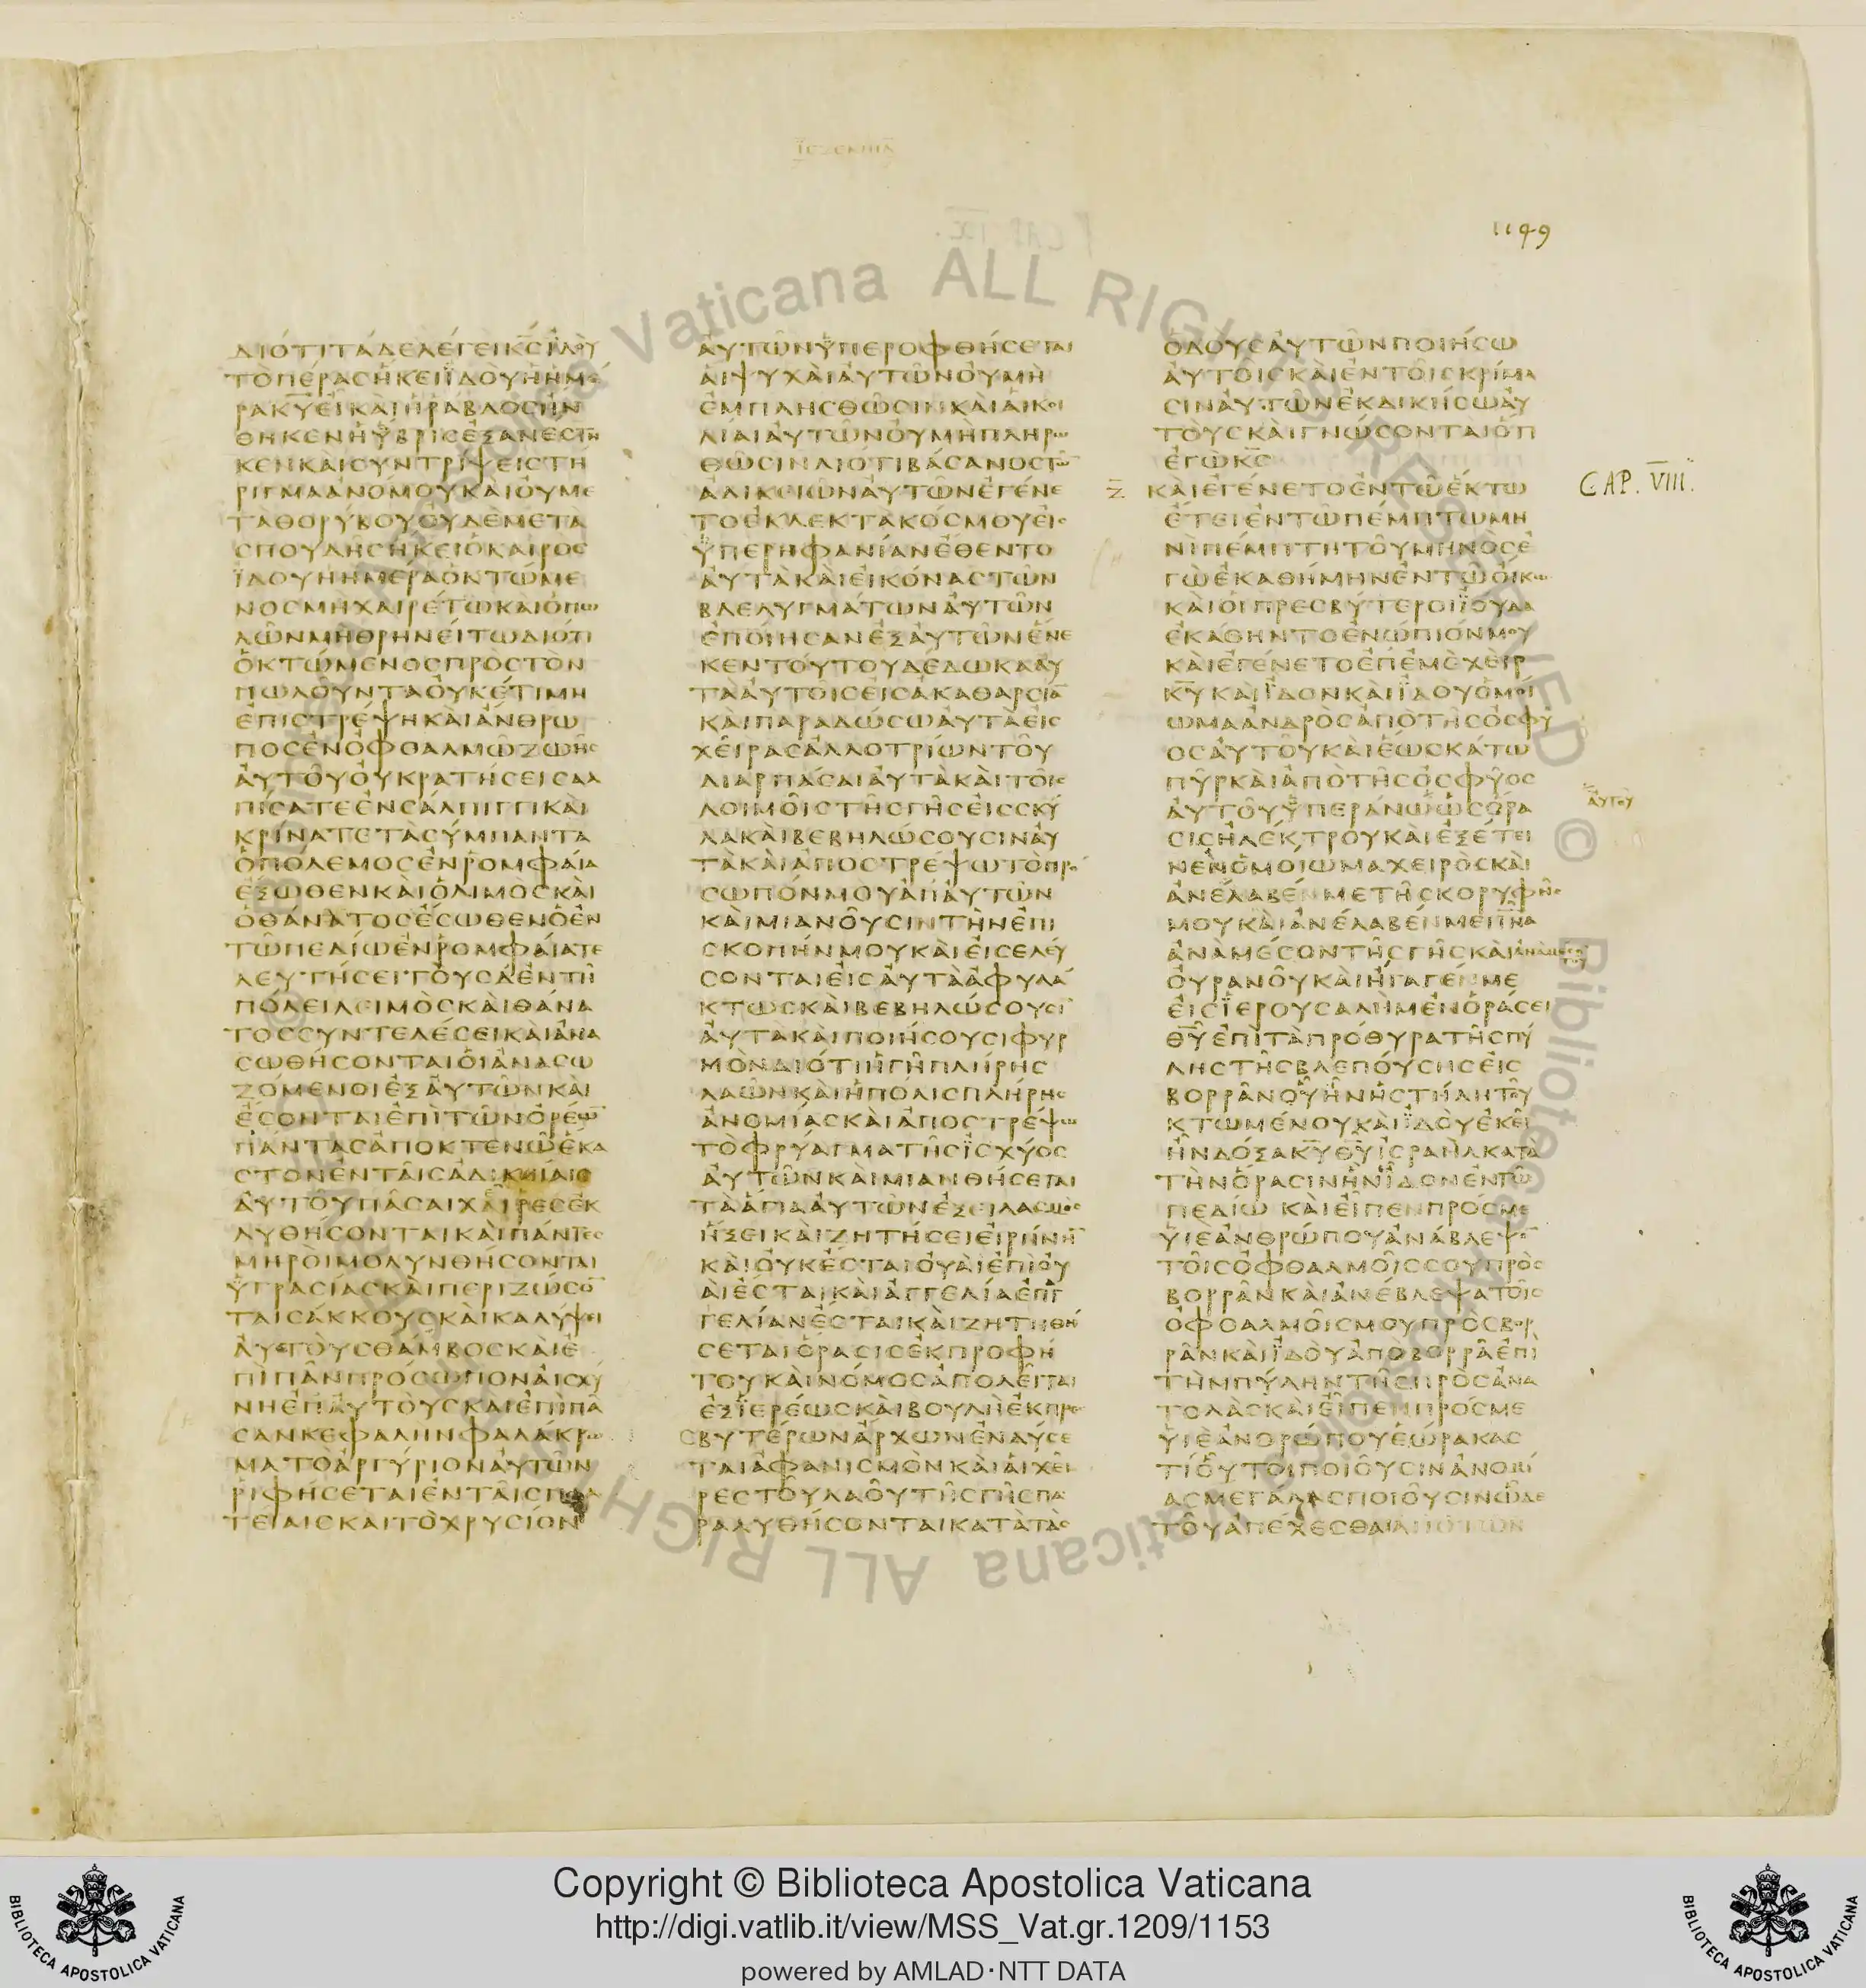 ΙΕΖΕΚΙΗΛ
1149
ΔΙΟΤΙΤΑΔΕΛΕΓΕΙΚ̅Σ̅ΙΔΟΥ
ΤΟΠΕΡΑΣΗΚΕΙΪΔΟΥΗΗΜΕ
ΡΑΚ̅Υ̅ΕΙΚΑΙΗΡΑΒΔΟΣΗΝ
ΘΗΚΕΝΗΥΒΡΙΣΕΞΑΝΕΣΤΗ
ΚΕΝΚΑΙΣΥΝΤΡΙΨΕΙΣΤΗ
ΡΙΓΜΑΑΝΟΜΟΥΚΑΙΟΥΜΕ
ΤΑΘΟΡΥΒΟΥΟΥΔΕΜΕΤΑ
ΣΠΟΥΔΗΣΗΚΕΙΟΚΑΙΡΟΣ
ΪΔΟΥΗΗΜΕΡΑΟΚΤΩΜΕ
ΝΟΣΜΗΧΑΙΡΕΤΩΚΑΙΟΠΩ
ΛΩΝΜΗΘΡΗΝΕΙΤΩΔΙΟΤΙ
ΟΚΤΩΜΕΝΟΣΠΡΟΣΤΟΝ
ΠΩΛΟΥΝΤΑΟΥΚΕΤΙΜΗ
ΕΠΙΣΤΡΕΨΗΚΑΙΑΝΘΡΩ
ΠΟΣΕΝΟΦΘΑΛΜΩΖΩΗΣ
ΑΥΤΟΥΟΥΚΡΑΤΗΣΕΙΣΑΛ
ΠΙΣΑΤΕΕΝΣΑΛΠΙΓΓΙΚΑΙ
ΚΡΙΝΑΤΕΤΑΣΥΜΠΑΝΤΑ
ΟΠΟΛΕΜΟΣΕΝΡΟΜΦΑΙΑ
ΕΞΩΘΕΝΚΑΙΟΛΙΜΟΣΚΑΙ
ΟΘΑΝΑΤΟΣΕΣΩΘΕΝΟΕΝ
ΤΩΠΕΔΙΩΕΝΡΟΜΦΑΙΑΤΕ
ΛΕΥΤΗΣΕΙΤΟΥΣΔΕΝΤΗ
ΠΟΛΕΙΛΕΙΜΟΣΚΑΙΘΑΝΑ
ΤΟΣΣΥΝΤΕΛΕΣΕΙΚΑΙΑΝΑ
ΣΩΘΗΣΟΝΤΑΙΟΙΑΝΑΣΩ
ΖΟΜΕΝΟΙΕΞΑΥΤΩΝΚΑΙ
ΕΣΟΝΤΑΙΕΠΙΤΩΝΟΡΕΩ̅
ΠΑΝΤΑΣΑΠΟΚΤΕΝΩΕΚΑ
ΣΤΟΝΕΝΤΑΙΣΑΔΙΚΙΑΙΣ
ΑΥΤΟΥΠΑΣΑΙΧΑΙΡΕΣΕΚ
ΛΥΘΗΣΟΝΤΑΙΚΑΙΠΑΝΤΕΣ
ΜΗΡΟΙΜΟΛΥΝΘΗΣΟΝΤΑΙ
ΥΓΡΑΣΙΑΣΚΑΙΠΕΡΙΖΩΣΟ̅
ΤΑΙΣΑΚΚΟΥΣΚΑΙΚΑΛΥΨΕΙ
ΑΥΤΟΥΣΘΑΜΒΟΣΚΑΙΕ
ΠΙΠΑΝΠΡΟΣΩΠΟΝΑΙΣΧΥ
ΝΗΕΠΑΥΤΟΥΣΚΑΙΕΠΙΠΑ
ΣΑΝΚΕΦΑΛΗΝΦΑΛΑΚΡΩ
ΜΑΤΟΑΡΓΥΡΙΟΝΑΥΤΩΝ
ΡΙΦΗΣΕΤΑΙΕΝΤΑΙΣΠΛΑ
ΤΕΙΑΙΣΚΑΙΤΟΧΡΥΣΙΟΝ
ΑΥΤΩΝΥΠΕΡΟΦΘΗΣΕΤΑΙ
ΑΙΨΥΧΑΙΑΥΤΩΝΟΥΜΗ
ΕΜΠΛΗΣΘΩΣΙΝΚΑΙΑΙΚΟΙ
ΛΙΑΙΑΥΤΩΝΟΥΜΗΠΛΗΡΩ
ΘΩΣΙΝΔΙΟΤΙΒΑΣΑΝΟΣΤΩ̅
ΑΔΙΚΕΙΩΝΑΥΤΩΝΕΓΕΝΕ
ΤΟΕΚΛΕΚΤΑΚΟΣΜΟΥΕΙΣ
ΥΠΕΡΗΦΑΝΙΑΝΕΘΕΝΤΟ
ΑΥΤΑΚΑΙΕΙΚΟΝΑΣΤΩΝ
ΒΔΕΛΥΓΜΑΤΩΝΑΥΤΩΝ
ΕΠΟΙΗΣΑΝΕΞΑΥΤΩΝΕΝΕ
ΚΕΝΤΟΥΤΟΥΔΕΔΩΚΑΑΥ
ΤΑΑΥΤΟΙΣΕΙΣΑΚΑΘΑΡΣΙΑ̅
ΚΑΙΠΑΡΑΔΩΣΩΑΥΤΑΕΙΣ
ΧΕΙΡΑΣΑΛΛΟΤΡΙΩΝΤΟΥ
ΔΙΑΡΠΑΣΑΙΑΥΤΑΚΑΙΤΟΙΣ
ΛΟΙΜΟΙΣΤΗΣΓΗΣΕΙΣΣΚΥ
ΛΑΚΑΙΒΕΒΗΛΩΣΟΥΣΙΝΑΥ
ΤΑΚΑΙΑΠΟΣΤΡΕΨΩΤΟΠΡΟ
ΣΩΠΟΝΜΟΥΑΠΑΥΤΩΝ
ΚΑΙΜΙΑΝΟΥΣΙΝΤΗΝΕΠΙ
ΣΚΟΠΗΝΜΟΥΚΑΙΕΙΣΕΛΕΥ
ΣΟΝΤΑΙΕΙΣΑΥΤΑΑΦΥΛΑ
ΚΤΩΣΚΑΙΒΕΒΗΛΩΣΟΥΣΙ̅
ΑΥΤΑΚΑΙΠΟΙΗΣΟΥΣΙΦΥΡ
ΜΟΝΔΙΟΤΙΗΓΗΠΛΗΡΗΣ
ΛΑΩΝΚΑΙΗΠΟΛΙΣΠΛΗΡΗΣ
ΑΝΟΜΙΑΣΚΑΙΑΠΟΣΤΡΕΨΩ
ΤΟΦΡΥΑΓΜΑΤΗΣΪΣΧΥΟΣ
ΑΥΤΩΝΚΑΙΜΙΑΝΘΗΣΕΤΑΙ
ΤΑΑΓΙΑΑΥΤΩΝΕΞΕΙΛΑΣΜΟΣ
ΗΞΕΙΚΑΙΖΗΤΗΣΕΙΕΙΡΗΝΗ̅
ΚΑΙΟΥΚΕΣΤΑΙΟΥΑΙΕΠΙΟΥ
ΑΙΕΣΤΑΙΚΑΙΑΓΓΕΛΙΑΕΠΑΓ
ΓΕΛΙΑΝΕΣΤΑΙΚΑΙΖΗΤΗΘΗ
ΣΕΤΑΙΟΡΑΣΙΣΕΚΠΡΟΦΗ
ΤΟΥΚΑΙΝΟΜΟΣΑΠΟΛΕΙΤΑΙ
ΕΞΪΕΡΕΩΣΚΑΙΒΟΥΛΗΕΚΠΡΕ
ΣΒΥΤΕΡΩΝΑΡΧΩΝΕΝΔΥΣΕ
ΤΑΙΑΦΑΝΙΣΜΟΝΚΑΙΑΙΧΕΙ
ΡΕΣΤΟΥΛΑΟΥΤΗΣΓΗΣΠΑ
ΡΑΛΥΘΗΣΟΝΤΑΙΚΑΤΑΤΑΣ
ΟΔΟΥΣΑΥΤΩΝΠΟΙΗΣΩ
ΑΥΤΟΙΣΚΑΙΕΝΤΟΙΣΚΡΙΜΑ
ΣΙΝΑΥΤΩΝΕΚΔΙΚΗΣΩΑΥ
ΤΟΥΣΚΑΙΓΝΩΣΟΝΤΑΙΟΤΙ
ΕΓΩΚ̅Σ̅
Ζ̅ ΚΑΙΕΓΕΝΕΤΟΕΝΤΩΕΚΤΩ
CAP. VIII.
ΕΤΕΙΕΝΤΩΠΕΜΠΤΩΜΗ
ΝΙΠΕΜΠΤΗΤΟΥΜΗΝΟΣΕ
ΓΩΕΚΑΘΗΜΗΝΕΝΤΩΟΙΚΩ
ΚΑΙΟΙΠΡΕΣΒΥΤΕΡΟΙΪΟΥΔΑ
ΕΚΑΘΗΝΤΟΕΝΩΠΙΟΝΜΟΥ
ΚΑΙΕΓΕΝΕΤΟΕΠΕΜΕΧΕΙΡ
Κ̅Υ̅ΚΑΙΪΔΟΝΚΑΙΪΔΟΥΟΜΟΙ
ΩΜΑΑΝΔΡΟΣΑΠΟΤΗΣΟΣΦΥ
ΟΣΑΥΤΟΥΚΑΙΕΩΣΚΑΤΩ
ΠΥΡΚΑΙΑΠΟΤΗΣΟΣΦΥΟΣ
ΑΥΤΟΥΥΠΕΡΑΝΩΩΣΟΡΑ
ΑΥΤΟΥ
ΣΙΣΗΛΕΚΤΡΟΥΚΑΙΕΞΕΤΕΙ
ΝΕΝΟΜΟΙΩΜΑΧΕΙΡΟΣΚΑΙ
ΑΝΕΛΑΒΕΝΜΕΤΗΣΚΟΡΥΦΗΣ
ΜΟΥΚΑΙΑΝΕΛΑΒΕΝΜΕΠ̅Ν̅Α̅
ΑΝΑΜΕΣΟΝΤΗΣΓΗΣΚΑΙΑΝΑΜΕΣΟΝΤΟΥ
ΟΥΡΑΝΟΥΚΑΙΗΓΑΓΕΝΜΕ
ΕΙΣΪΕΡΟΥΣΑΛΗΜΕΝΟΡΑΣΕΙ
Θ̅Υ̅ΕΠΙΤΑΠΡΟΘΥΡΑΤΗΣΠΥ
ΛΗΣΤΗΣΒΛΕΠΟΥΣΗΣΕΙΣ
ΒΟΡΡΑΝΟΥΗΝΗΣΤΗΛΗΤΟΥ
ΚΤΩΜΕΝΟΥΚΑΙΪΔΟΥΕΚΕΙ
ΗΝΔΟΞΑΚ̅Υ̅Θ̅Υ̅ΙΣΡΑΗΛΚΑΤΑ
ΤΗΝΟΡΑΣΙΝΗΝΪΔΟΝΕΝΤΩ
ΠΕΔΙΩ ΚΑΙΕΙΠΕΝΠΡΟΣΜΕ
ΥΙΕΑΝΘΡΩΠΟΥΑΝΑΒΛΕΨΟ̅
ΤΟΙΣΟΦΘΑΛΜΟΙΣΣΟΥΠΡΟΣ
ΒΟΡΡΑΝΚΑΙΑΝΕΒΛΕΨΑΤΟΙΣ
ΟΦΘΑΛΜΟΙΣΜΟΥΠΡΟΣΒΟΡ
ΡΑΝΚΑΙΪΔΟΥΑΠΟΒΟΡΡΑΕΠΙ
ΤΗΝΠΥΛΗΝΤΗΣΠΡΟΣΑΝΑ
ΤΟΛΑΣΚΑΙΕΙΠΕΝΠΡΟΣΜΕ
ΥΙΕΑΝΘΡΩΠΟΥΕΩΡΑΚΑΣ
ΤΙΟΥΤΟΙΠΟΙΟΥΣΙΝΑΝΟΜΙ
ΑΣΜΕΓΑΛΑΣΠΟΙΟΥΣΙΝΩΔΕ
ΤΟΥΑΠΕΧΕΣΘΑΙΑΠΟΤΩΝ
Vaticana ALL RIGHTS RESERVED © Biblioteca Apostolica Vaticana ALL RIGH
Copyright © Biblioteca Apostolica Vaticana
http://digi.vatlib.it/view/MSS_Vat.gr.1209/1153
powered by AMLAD·NTT DATA
BIBLIOTECA APOSTOLICA VATICANA
BIBLIOTECA APOSTOLICA VATICANA